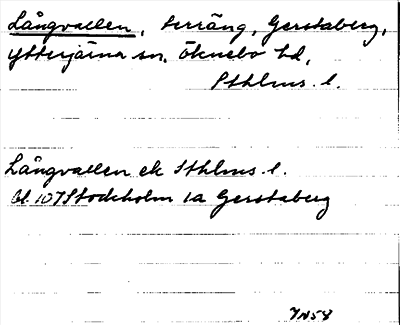 Långvallen, terräng, Gerstaberg,
Ytterjärna sn, Öknebo hd,
Sthlms. l.
Långvallen ek Sthlms. l.
Bl 107 Stockholm 1a Gerstaberg